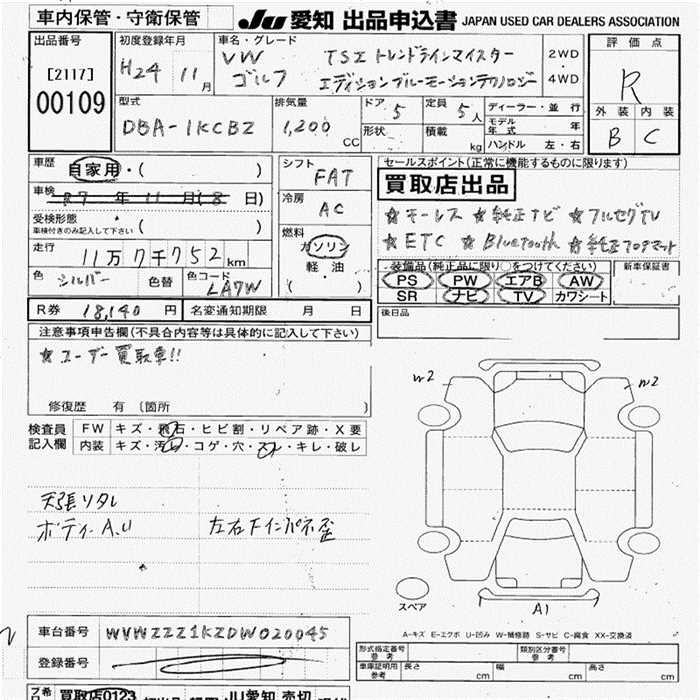 車内保管・守衛保管
JU 愛知 出品申込書 JAPAN USED CAR DEALERS ASSOCIATION
出品番号
[2117]
00109
初度登録年月
H24 11月
車名・グレード
VW
ゴルフ
TSI トレンドラインマイスター
エディションブルーモーションテクノロジー
2WD
・
4WD
評価点
R
外装 内装
B C
型式
DBA-1KCBZ
排気量
1,200 CC
ドア 5
形状
定員 5人
積載 kg
ディーラー・並行
モデル年式 年
ハンドル 左・右
車歴
自家用・( )
車検
R7 年 11 月(8 日)
受検形態
車検付きのみ記入して下さい ( )
走行
11万7千752km
色 シルバー 色替
色コード
LA7W
シフト
FAT
冷房
AC
燃料
ガソリン
軽油
( )
セールスポイント(正常に機能するものに限ります)
買取店出品
☆キーレス ☆純正ナビ ☆フルセグTV
☆ETC ☆Bluetooth ☆純正フロアマット
装備品(純正品に限り○をつけてください)
PS PW エアB AW
SR ナビ TV カワシート
新車保証書
後日品
R券 18,140円
名変通知期限 月 日
注意事項申告欄(不具合内容等は具体的に記入して下さい)
☆ユーザー買取車!!
修復歴 有 〔箇所 〕
検査員
記入欄
FW キズ・飛石・ヒビ割・リペア跡・X要
内装 キズ・汚れ・コゲ・穴・スレ・キレ・破レ
天張リタレ
ボディーA.U 左右FインパネZ歪
W2
W2
A1
スペア
A-キズ E-エクボ U-凹み W-補修跡 S-サビ C-腐食 XX-交換済
車台番号 WVWZZZ1KZDW020045
登録番号
形式指定番号
参考
類別区分番号
参考
車庫証明用
参考
長さ cm 幅 cm 高さ cm
買取店0123
JU愛知 売切